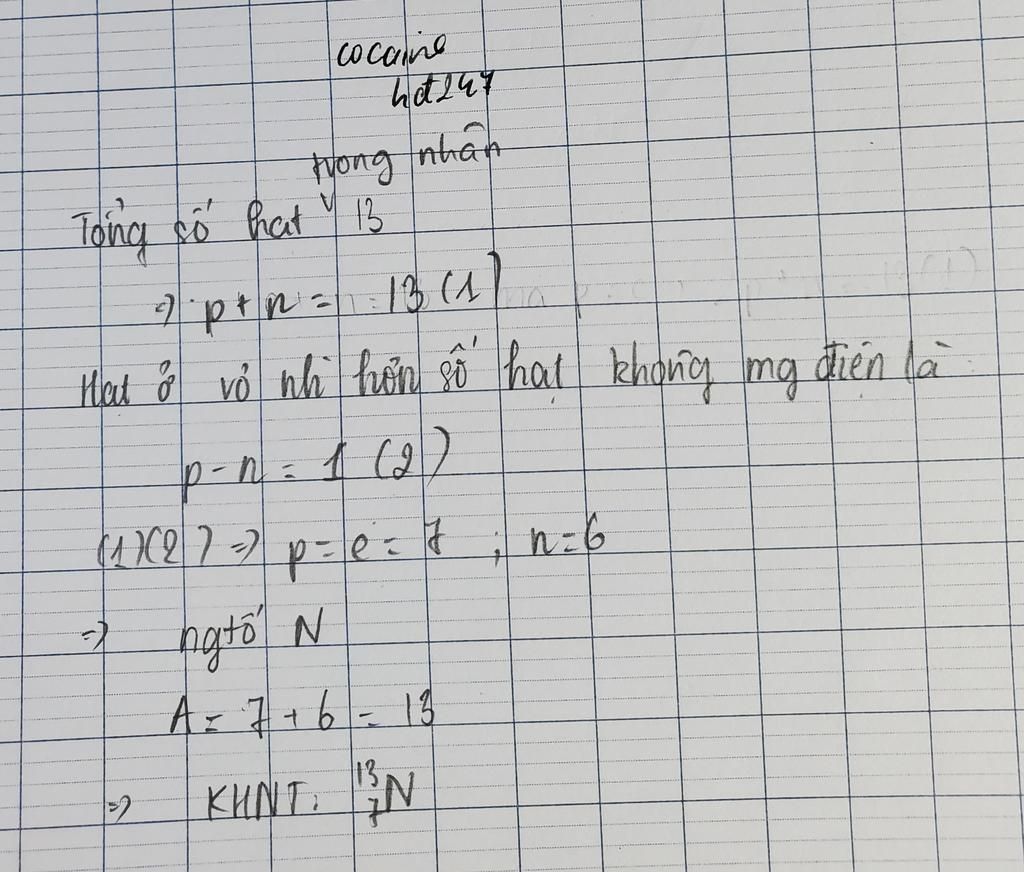 cocaine
hd247
trong nhân
Tổng số hat 13
=> p + n = 13 (1)
Hat ở vỏ nh hơn số hạt không mg điên là
p - n = 1 (2)
(1)(2) => p = e = 7 ; n = 6
=> ngtố N
A = 7 + 6 = 13
=> KHNT: ¹³₇N